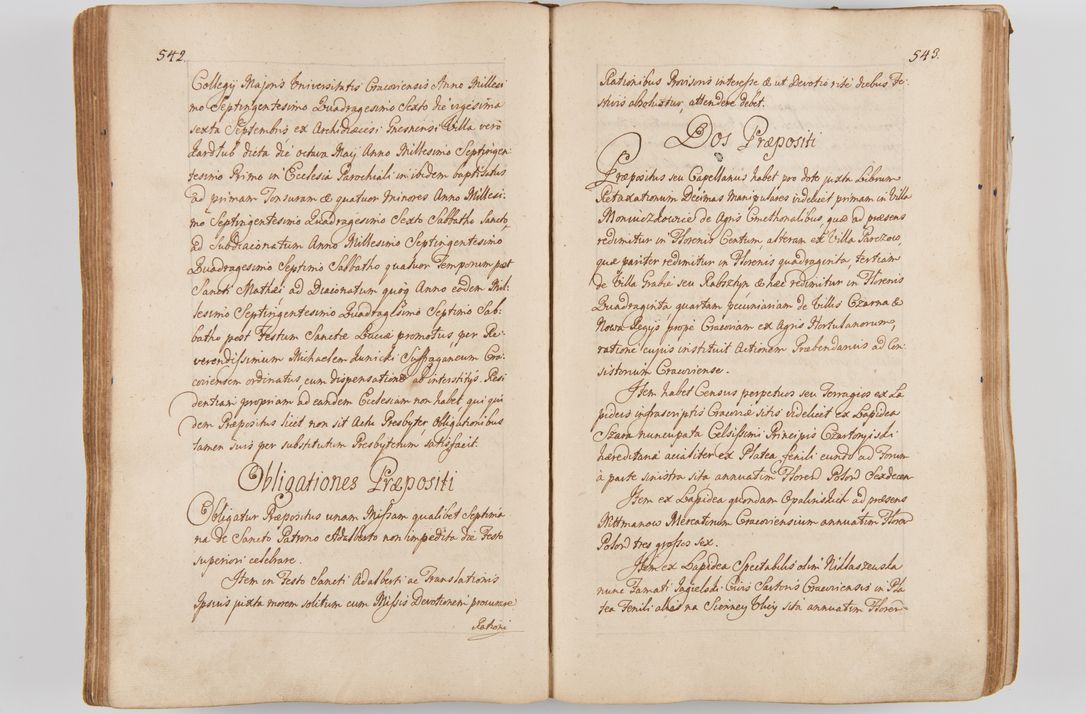 542.
Collegij Majoris Universitatis Cracoviensis Anno Millesi
mo Septingentesimo Quadragesimo Sexto die vigesima
sexta Septembris ex Archidiæcesi Gnesnensi Villa vero
dicta die octava Maij Anno Millesimo Septingen
tesimo Primo in Ecclesia Parochiali in ibidem baptisatus
ad primam Tonsuram & quatuor minores Anno Millesi
mo Septingentesimo Quadragesimo Sexto Sabbatho Sancto,
ad Subdiaconatum Anno Millesimo Septingentesimo
Quadragesimo Septimo Sabbatho quatuor Temporum post
Sancti Mathæi, ad Diaconatum quoq Anno eodem Mil
lesimo Septingentesimo Quadragesimo Septimo Sab:
batho post Festum Sanctæ Luciæ promotus per Re:
verendissimum Michaelem Kunicki Suffraganeum Cra:
coviensem ordinatus, cum dispensatione ab interstitijs. Resi
dentiam propriam ad eandem Ecclesiam non habet qui qui
dem Præpositus licet non sit Actu Presbyter, Obligationibus
tamen suis per substitutum Presbyterum satisfacit.
Obligationes Præpositi
Obligatur Præpositus unam Missam qualibet Septima
na de Sancto Patrono Adalberto non impedita die Festo
superiori celebrare.
Item in Festo Sancti Adalberti ac Translationis
Ipsius juxta morem solitum cum Missis Devotionem procurare
Rationi
543.
Rationibus Provisoris interesse & ut Devotio risi diebus Fe:
stivis aboleatur, attendere debet.
Dos Præpositi
Præpositus seu Capellanus habet pro dote juxta Librum
Retaxationum Decimas Manipulares videlicet primam in Villa
de Agris Cmethonalibus, quæ ad præsens
redimitur in Florenis Centum, alteram ex Villa Parczow,
quæ pariter redimitur in Florenis quadraginta, tertiam
de Villa Grabie seu Rabsztyn & hæc redimitur in Florenis
Quadraginta, quartam pecuniariam de Villis Czarna &
Nowa Regijs propè Cracoviam ex Agris Hortulanorum,
ratione cujus instituit Actionem Præbendarius ad Con:
sistorium Cracoviense.
Item habet Census perpetuos seu Terragia ex La
pideis infrascriptis Cracoviæ sitis videlicet ex Lapidea
Szara nuncupata Celsissimi Principis Czartoryiski
hæreditaria acialiter ex Platea fenili eundo ad Forum
à parte sinistra sita annuatim Floren Polon Sexdecem
Item ex Lapidea quondam Opalinskich ad præsens
Mercatorum Cracoviensium annuatim Floren
Polon tres grossos sex.
Item ex Lapidea Spectabilis olim
nunc Famati Jagielski Civis Sartoris Cracoviensis in Pla
tea Fenili alias na Sienney Ulicy sita annuatim Floren-